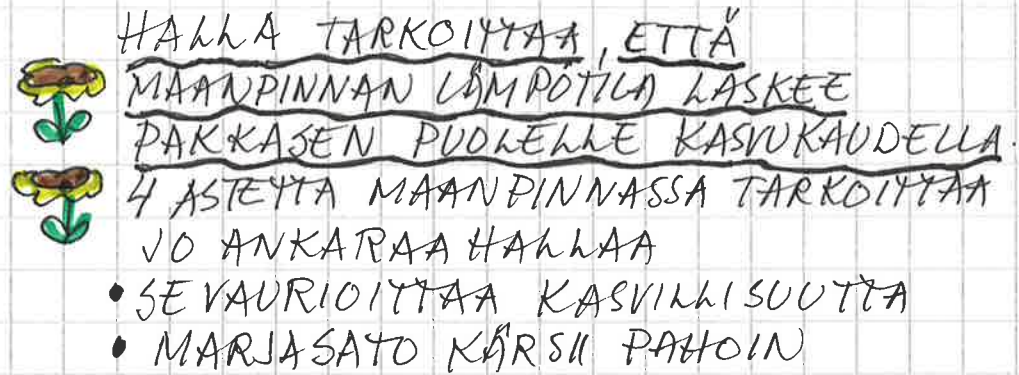 HALLA TARKOITTAA, ETTÄ
MAANPINNAN LÄMPÖTILA LASKEE
PAKKASEN PUOLELLE KASVUKAUDELLA.
4 ASTETTA MAANPINNASSA TARKOITTAA
JO ANKARAA HALLAA
• SE VAURIOITTAA KASVILLISUUTTA
• MARJASATO KÄRSII PAHOIN